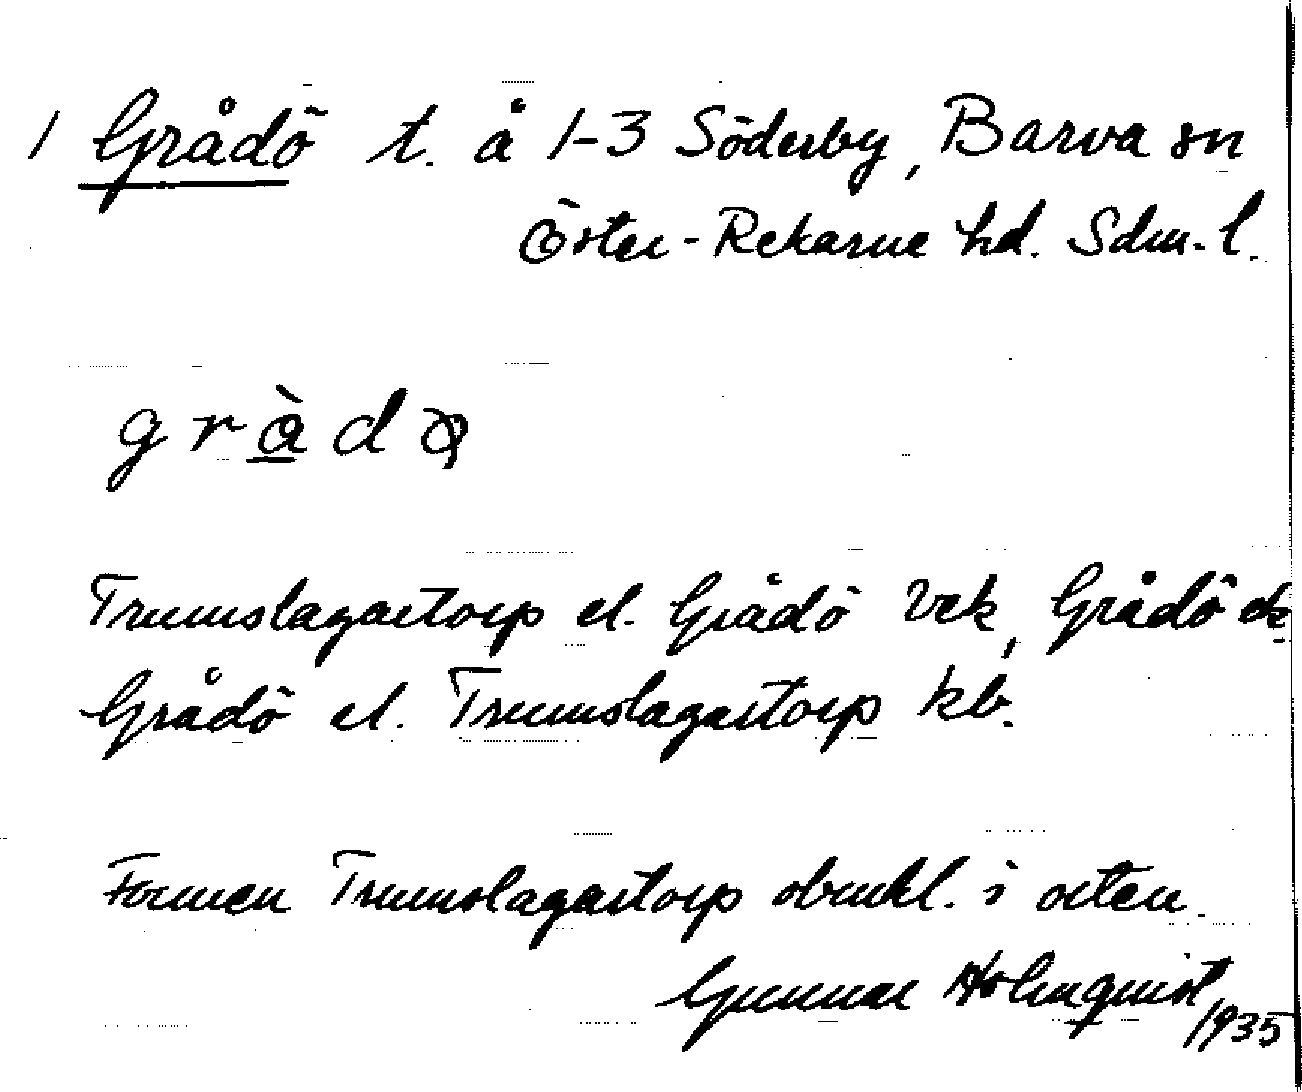 1 Grådö t. å 1-3 Söderby, Barva sn
Öster-Rekarne hd. Sdm-l.
Trumslagartorp el. Grådö Vek, Grådö ek
Grådö el. Trumslagartorp kb.
Formen Trumslagartorp obrukl. i orten.
Gunnar Holmquist, 1935